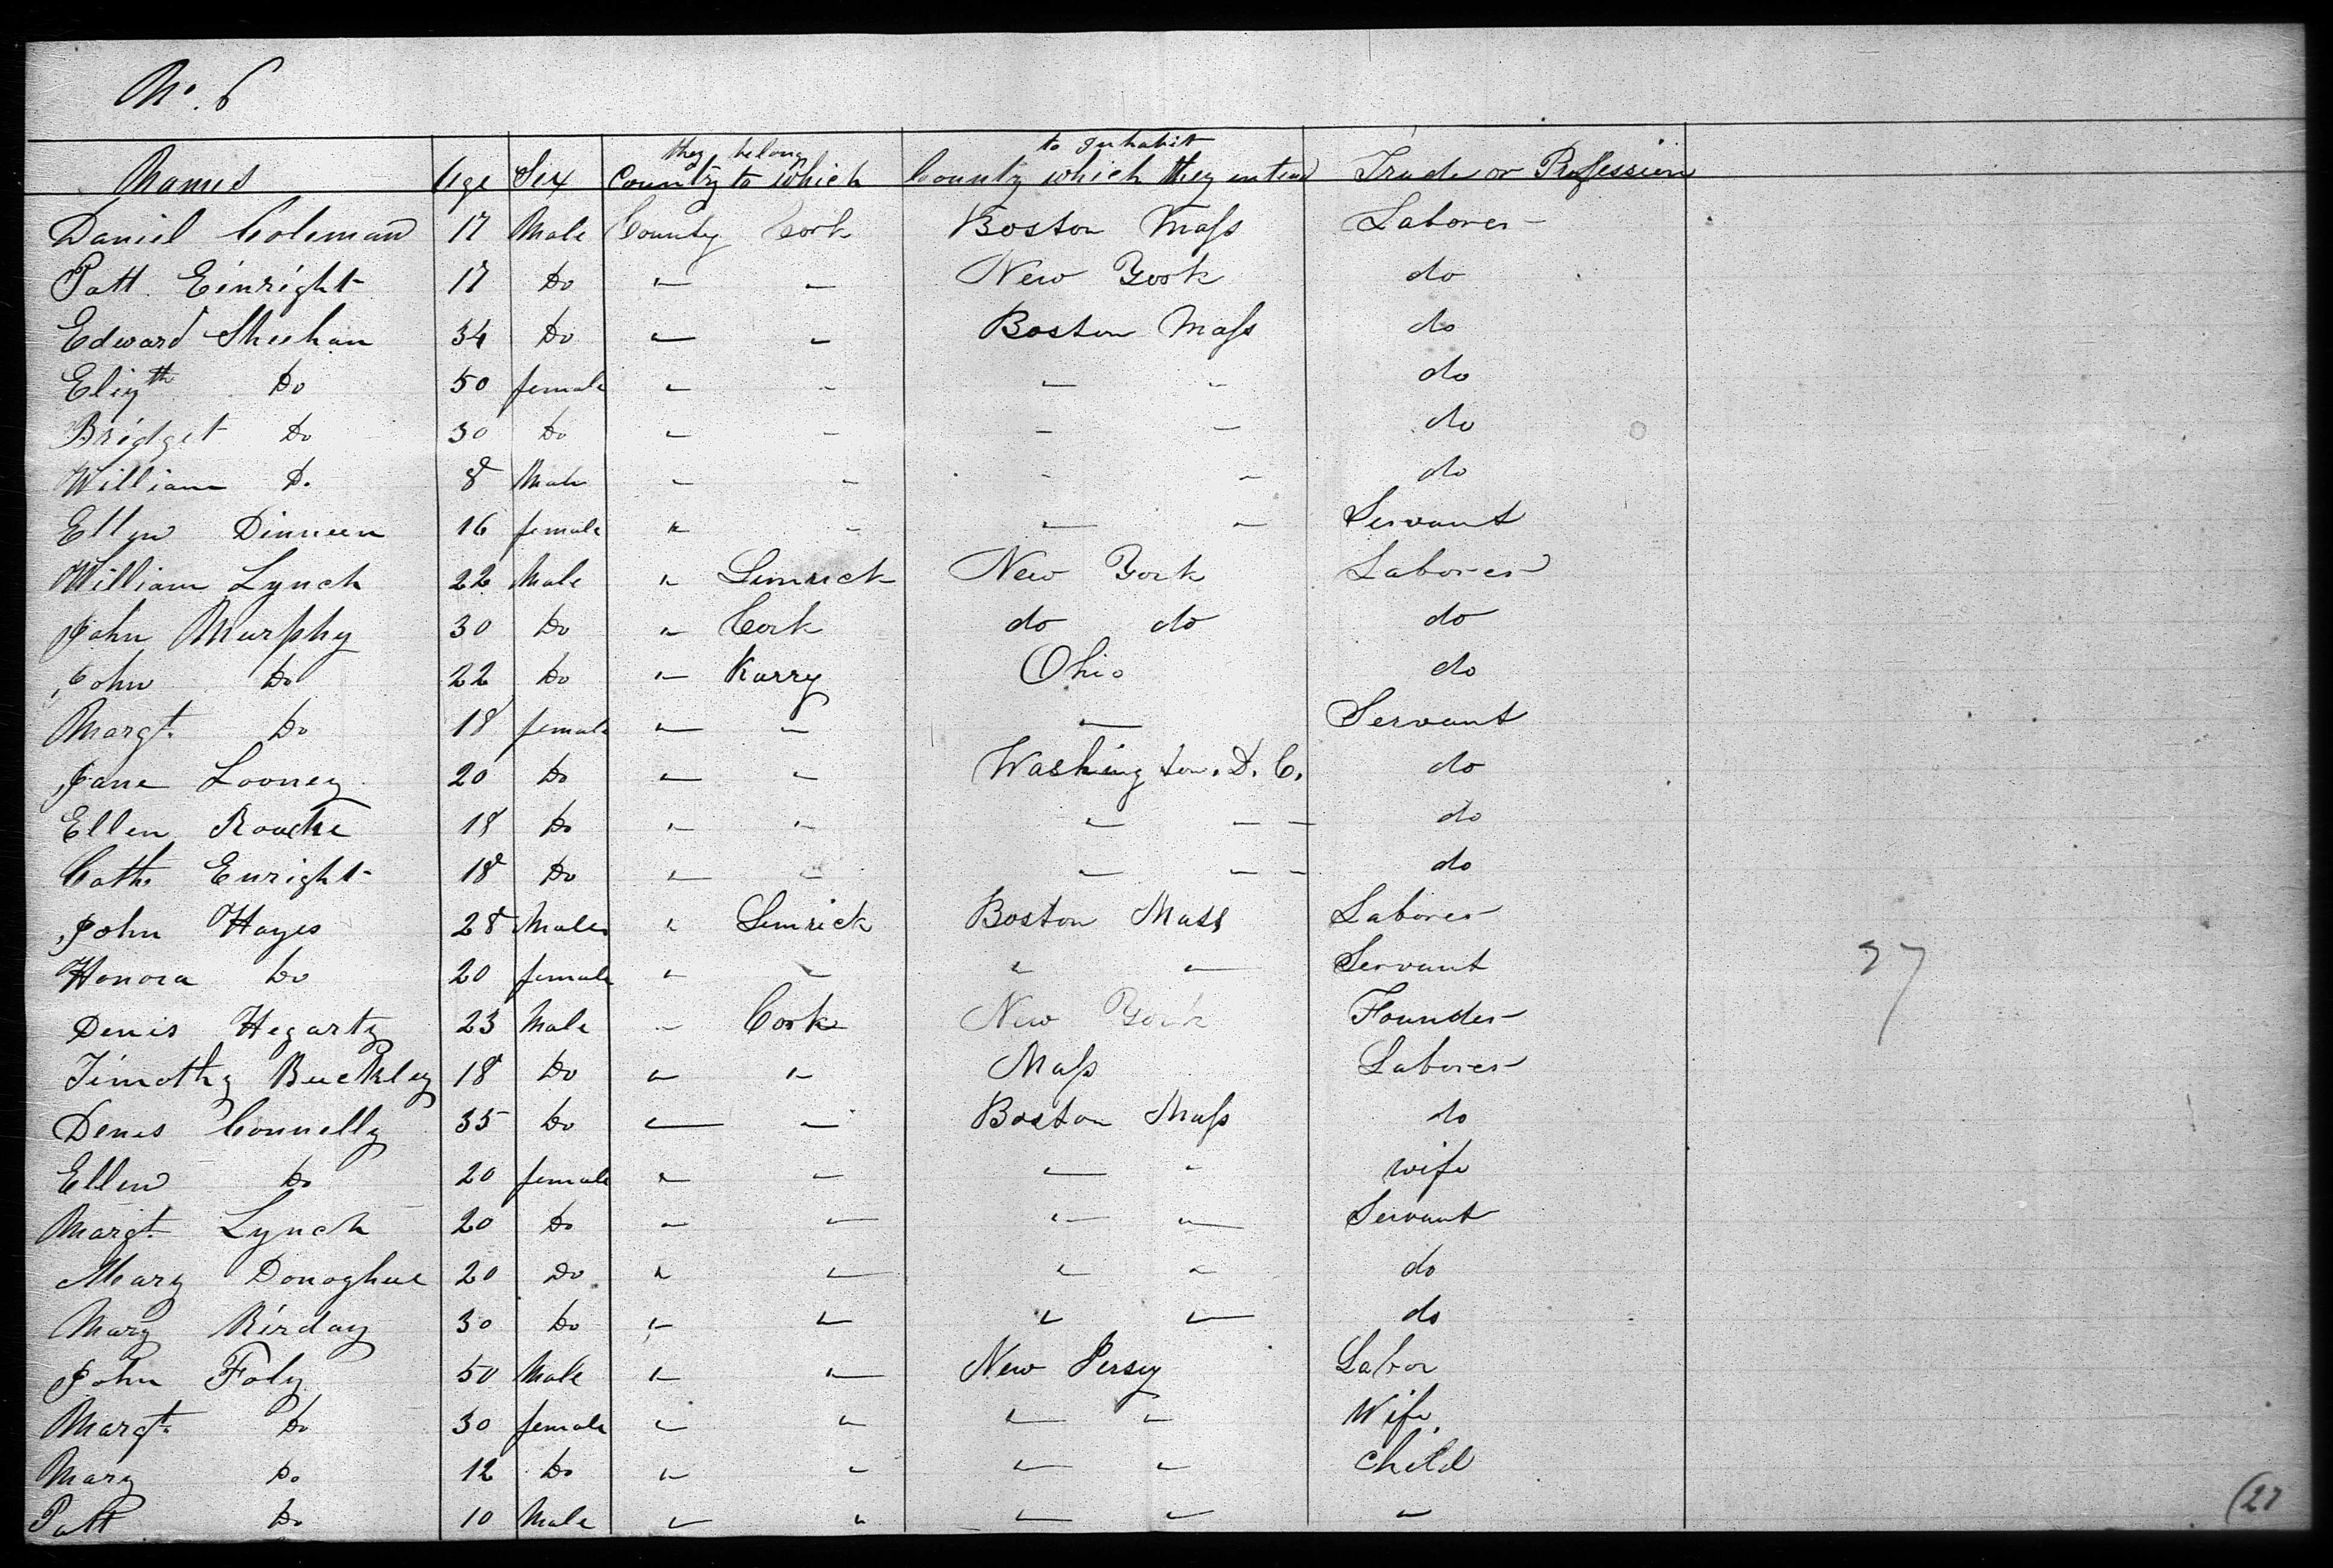 No. 6
Names Age Sex County to which they belong County which they intend to Inhabit Trade or Profession
Daniel Coleman 17 Male County Cork Boston Mass Laborer
Patt Einright 17 Do " " New York do
Edward Sheehan 34 Do " " Boston Mass do
Elizth Do 50 female " " " " do
Bridget Do 30 Do " " " " do
William Do 8 Male " " " " do
Ellen Dinneen 16 female " " " " Servant
William Lynch 22 Male " Limrick New York Laborer
John Murphy 30 Do " Cork do do do
John Do 22 Do " Karry Ohio do
Margt. Do 18 female " " " Servant
Jane Looney 20 Do " " Washington. D. C. do
Ellen Roache 18 Do " " " " " do
Cath. Enright 18 Do " " " " " do
John Hayes 28 Male " Limrick Boston Mass Laborer
Honora Do 20 female " " " " Servant
Denis Hegarty 23 Male " Cork New York Founder
Timothy Buckley 18 Do " " Mass Laborer
Denis Connelly 35 Do " " Boston Mass do
Ellen Do 20 female " " " " wife
Margt. Lynch 20 Do " " " " Servant
Mary Donoghue 20 Do " " " " do
Mary Rirday 30 Do " " " " do
John Foly 50 Male " " New Jersey Labor
Margt. Do 30 female " " " " Wife
Mary Do 12 Do " " " " child
Patt Do 10 Male " " " " "
27
(27